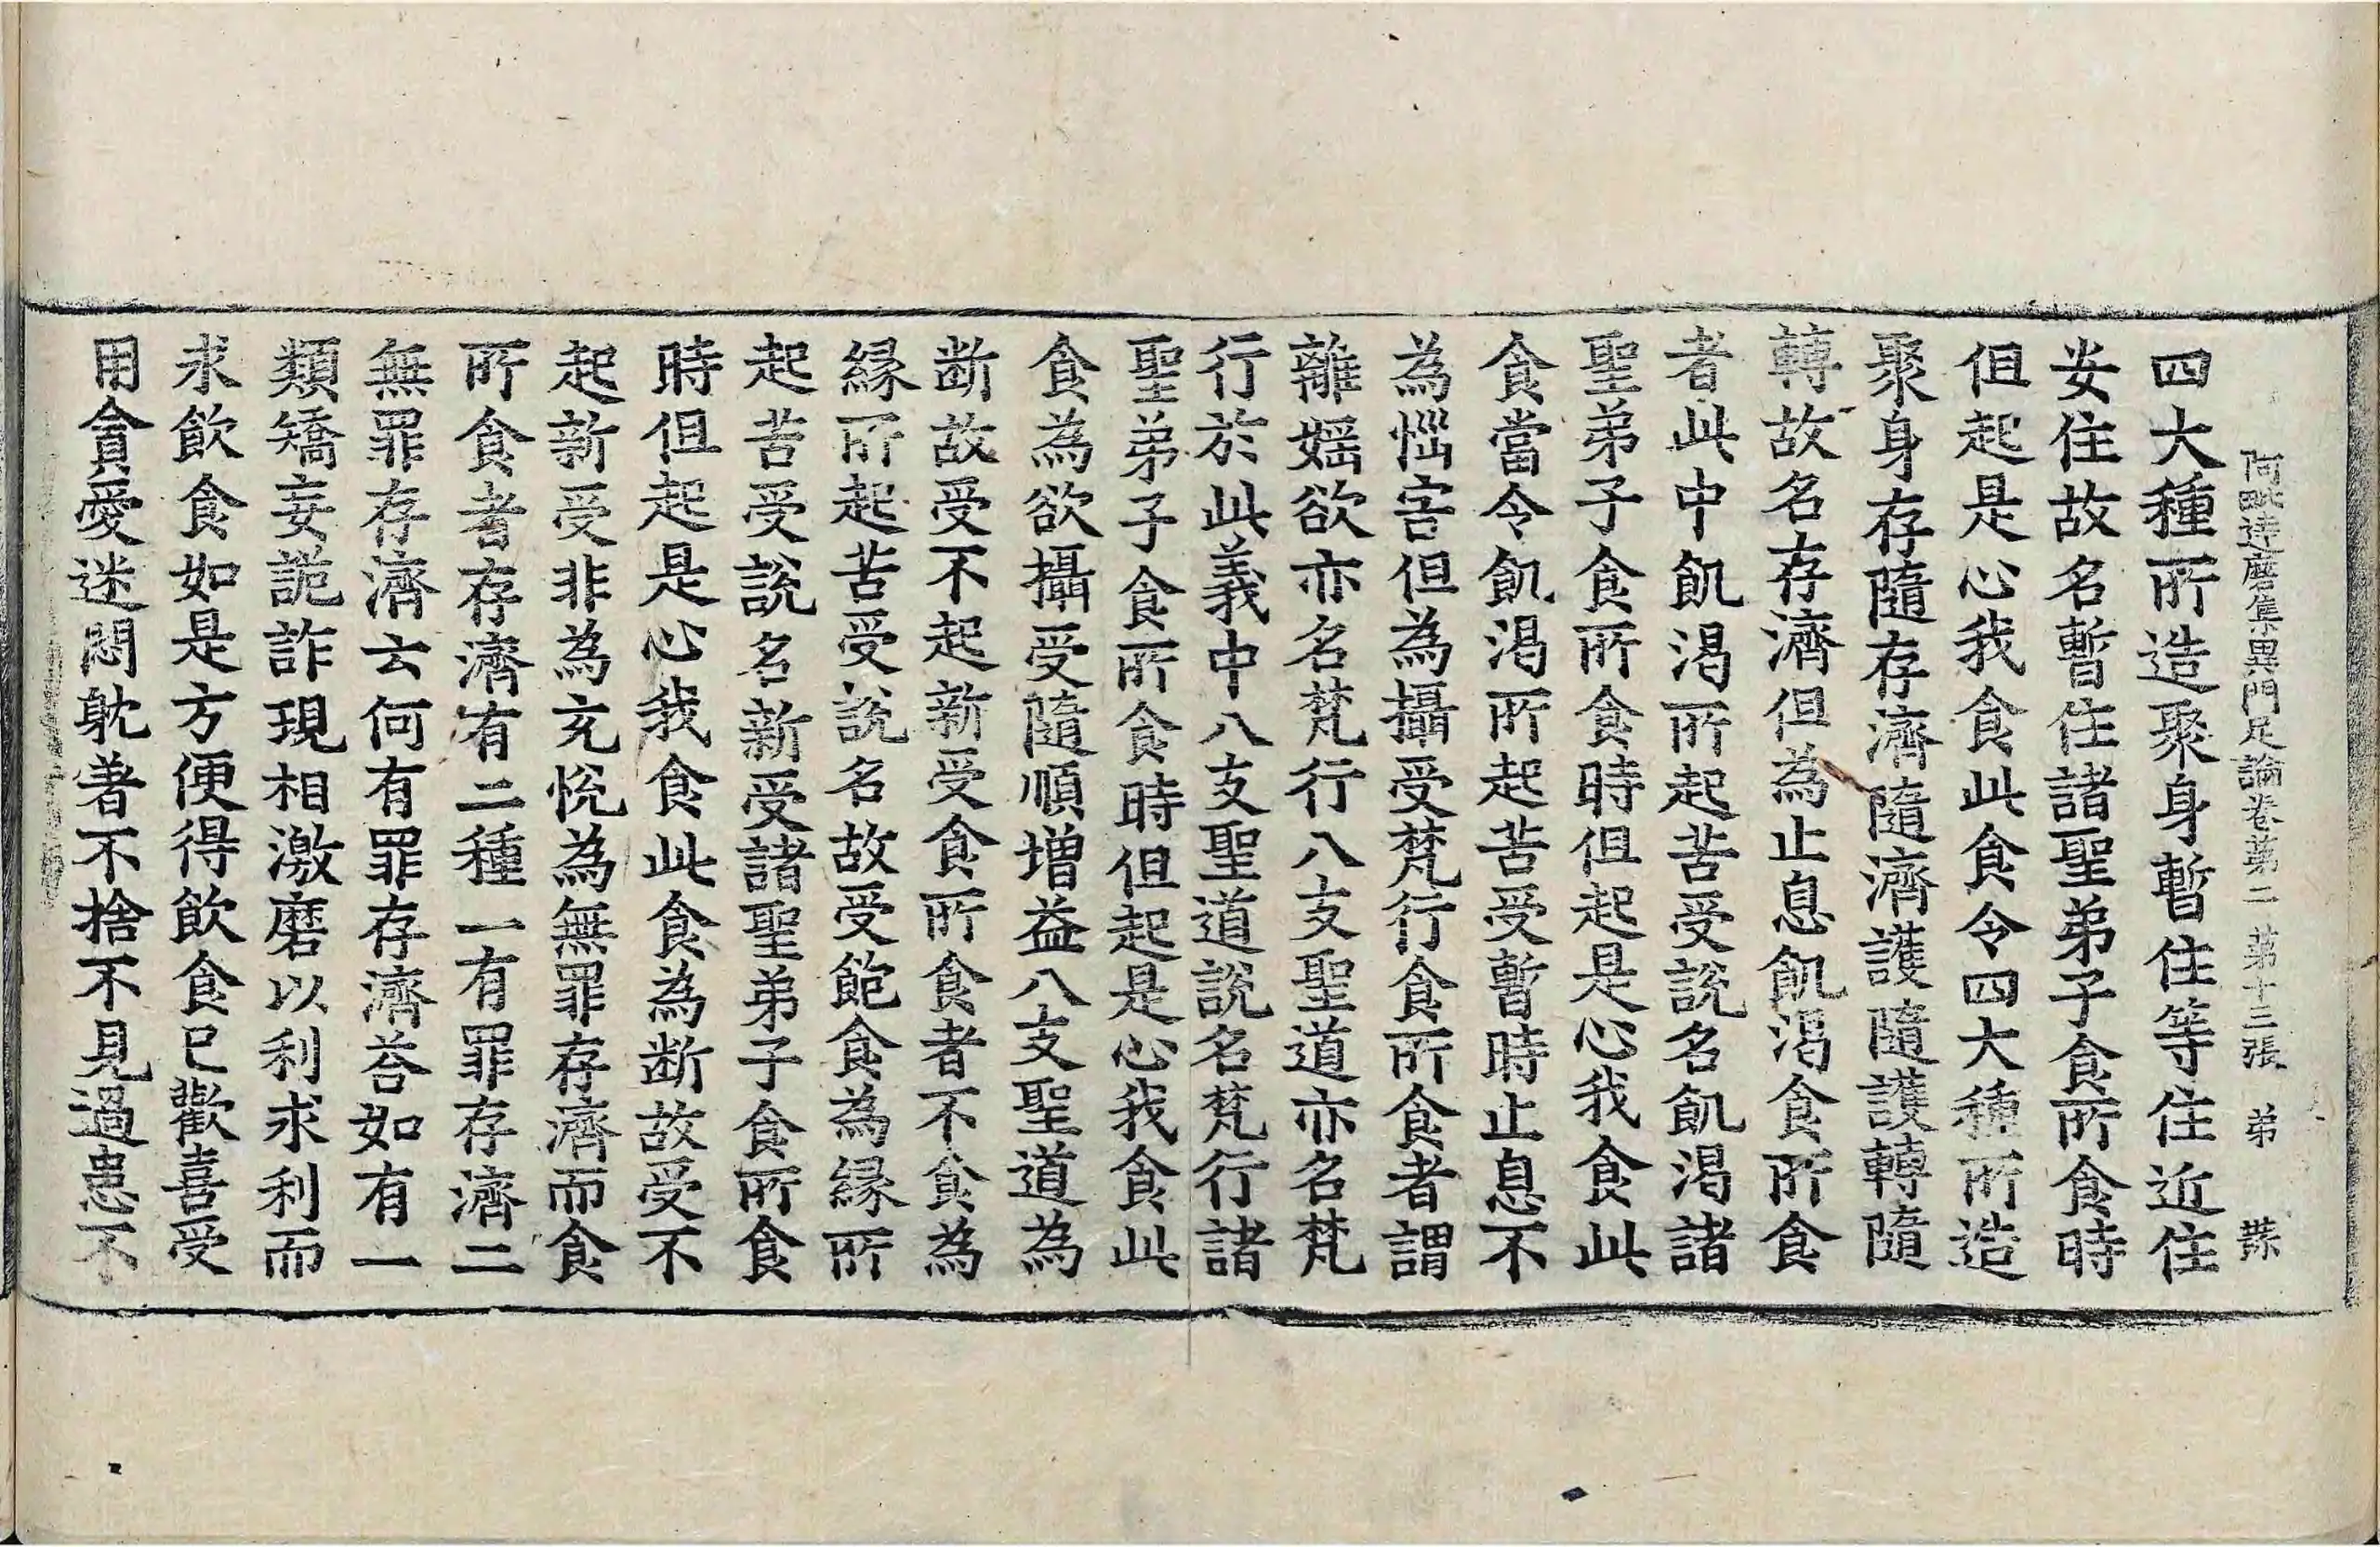 阿毗達磨集異門足論卷第二 第十三張 弟
四大種所造聚身暫住等住近住
安住故名暫住諸聖弟子食所食時
但起是心我食此食令四大種所造
聚身存隨存濟隨濟護隨護轉隨
轉故名存濟但為止息飢渴食所食
者此中飢渴所起苦受說名飢渴諸
聖弟子食所食時但起是心我食此
食當令飢渴所起苦受暫時止息不
為惱害但為攝受梵行食所食者謂
離婬欲亦名梵行八支聖道亦名梵
行於此義中八支聖道說名梵行諸
聖弟子食所食時但起是心我食此
食為欲攝受隨順增益八支聖道為
斷故受不起新受食所食者不食為
緣所起苦受說名故受飽食為緣所
起苦受說名新受諸聖弟子食所食
時但起是心我食此食為斷故受不
起新受非為充悅為無罪存濟而食
所食者存濟有二種一有罪存濟二
無罪存濟云何有罪存濟荅如有一
類矯妄詭詐現相激磨以利求利而
求飲食如是方便得飲食已歡喜受
用貪愛迷悶躭著不捨不見過患不